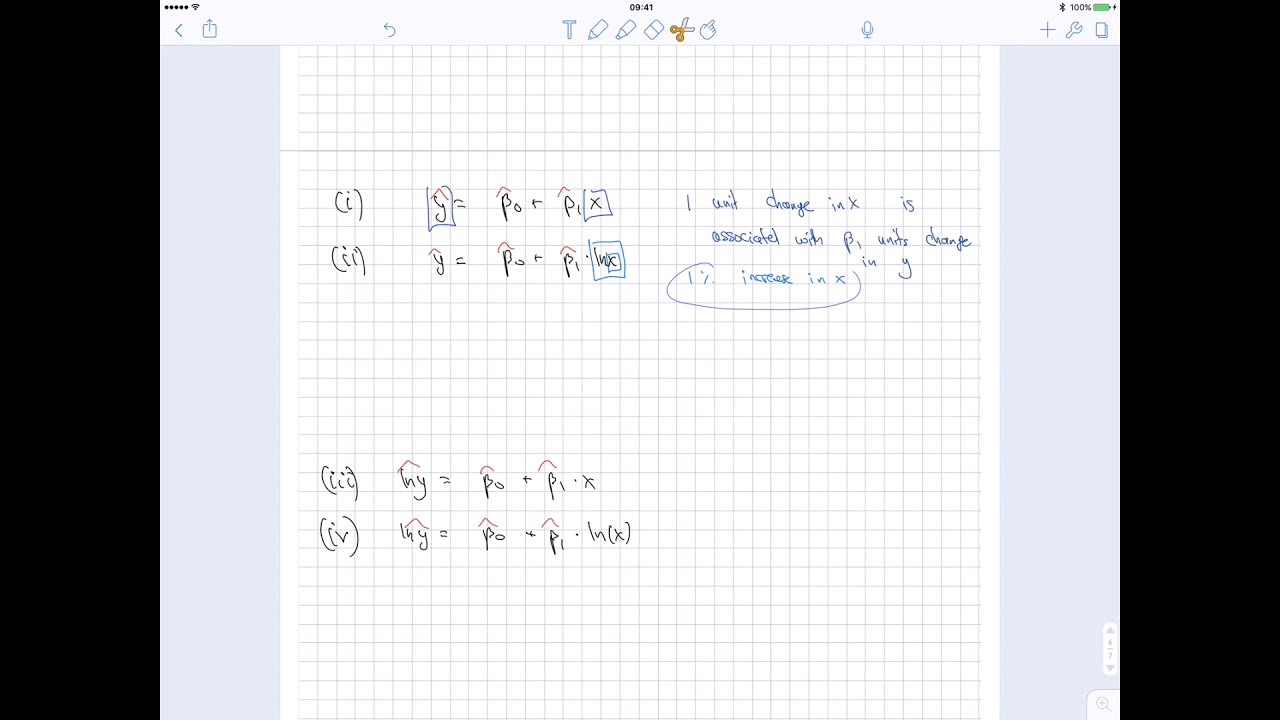 09:41
100%
T
(i) ŷ = β̂₀ + β̂₁ x
1 unit change in x is
associated with β₁ units change
in y
(ii) ŷ = β̂₀ + β̂₁ · ln x
1% increase in x
(iii) l̂n̂ŷ = β̂₀ + β̂₁ · x
(iv) l̂n̂ŷ = β̂₀ + β̂₁ · ln(x)
6
7